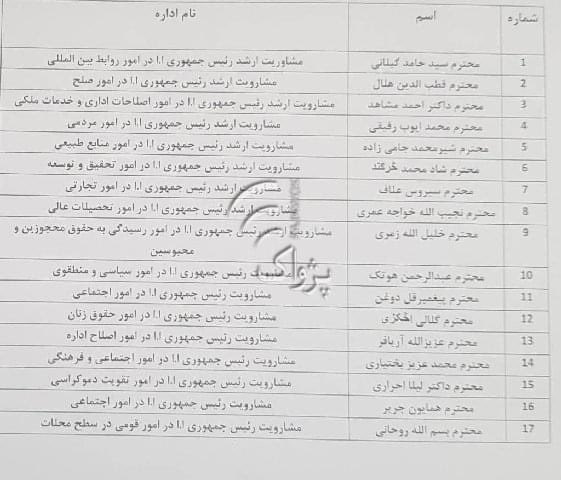 شماره اسم نام اداره
1 محترم سید حامد گیلانی مشاوریت ارشد رئیس جمهوری ا.ا در امور روابط بین المللی
2 محترم قطب الدین هلال مشاوریت ارشد رئیس جمهوری ا.ا در امور صلح
3 محترم داکتر احمد مشاهد مشاوریت ارشد رئیس جمهوری ا.ا در امور اصلاحات اداری و خدمات ملکی
4 محترم محمد ایوب رفیقی مشاوریت ارشد رئیس جمهوری ا.ا در امور مردمی
5 محترم شیرمحمد جامی زاده مشاوریت ارشد رئیس جمهوری ا.ا در امور منابع طبیعی
6 محترم شاد محمد مشاوریت ارشد رئیس جمهوری ا.ا در امور تحقیق و توسعه
7 محترم سیروس علاف مشاوریت ارشد رئیس جمهوری ا.ا در امور تجارتی
8 محترم نجیب الله خواجه عمری مشاوریت ارشد رئیس جمهوری ا.ا در امور تحصیلات عالی
9 محترم خلیل الله زمری مشاوریت ارشد رئیس جمهوری ا.ا در امور رسیدگی به حقوق محجوزین و
محبوسین
10 محترم عبدالرحمن هوتک مشاوریت رئیس جمهوری ا.ا در امور سیاسی و منطقوی
11 محترم پیغمبرقل دوغن مشاوریت رئیس جمهوری ا.ا در امور اجتماعی
12 محترم گلالی مشاوریت رئیس جمهوری ا.ا در امور حقوق زنان
13 محترم عزیزالله آریافر مشاوریت رئیس جمهوری ا.ا در امور اصلاح اداره
14 محترم محمد عزیز بختیاری مشاوریت رئیس جمهوری ا.ا در امور اجتماعی و فرهنگی
15 محترم داکتر لیلا احراری مشاوریت رئیس جمهوری ا.ا در امور تقویت دموکراسی
16 محترم همایون جریر مشاوریت رئیس جمهوری ا.ا در امور اجتماعی
17 محترم بسم الله روحانی مشاوریت رئیس جمهوری ا.ا در امور قومی در سطح محلات
پژواک